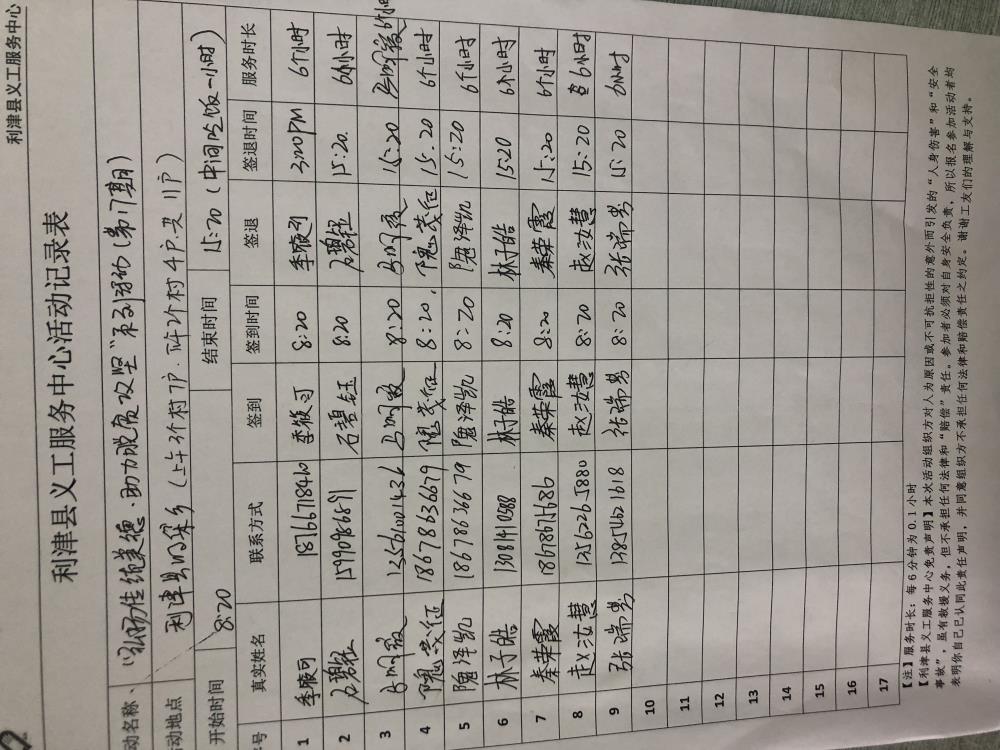 利津县义工服务中心
利津县义工服务中心活动记录表
动名称 “弘扬传统美德·助力脱贫攻坚”系列活动(第17期)
活动地点 利津县明集乡(上午3个村7户·下午2个村4户·共11户)
开始时间 8:20 结束时间 15:20(中间吃饭一小时)
号 真实姓名 联系方式 签到 签到时间 签退 签退时间 服务时长
1 18766718410 8:20 3:20PM 6个小时
2 15990986891 石碧钰 8:20 15:20. 6个小时
3 13561001436 8:20 15:20
4 18678636679 8:20. 15.20 6个小时
5 隗泽凯 18678636679 隗泽凯 8:20 隗泽凯 15:20 6个小时
6 林子皓 13081410588 林子皓 8:20 林子皓 15:20 6个小时
7 秦荣霞 18678671686 秦荣霞 8:20 秦荣霞 15:20 6个小时
8 赵汝慧 13562265880 赵汝慧 8:20 赵汝慧 15:20 6小时
9 张瑞男 13854621618 张瑞男 8:20 张瑞男 15:20 6小时
10
11
12
13
14
15
16
17
【注】服务时长:每6分钟为0.1小时
【利津县义工服务中心免责声明】本次活动组织方对人为原因或不可抗拒性的意外而引发的“人身伤害”和“安全
事故”,虽有救援义务,但不承担任何法律和“赔偿”责任。参加者必须对自身安全负责,所以报名参加活动者均
表明你自己已认同此责任声明,并同意组织方不承担任何法律和赔偿责任之约定。谢谢工友们的理解与支持。